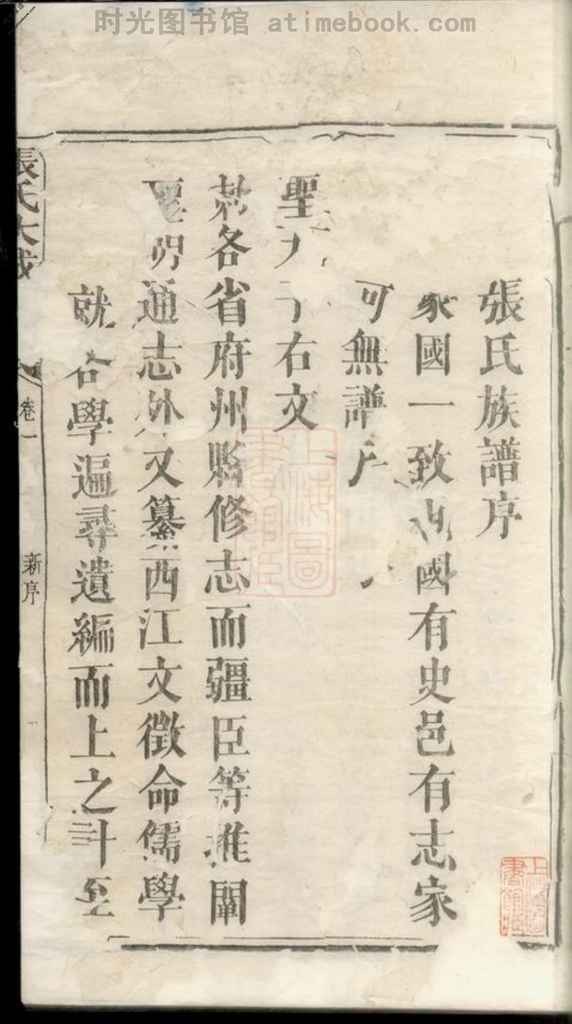 时光图书馆 atimebook.com
張氏族譜序
家國一致也國有史邑有志家
可無譜
聖天子右文
各省府州縣修志而疆臣等推闡
通志外又纂西江文徵命儒學
就各學遍尋遺編而上之計至
張氏大成
卷一
新序
上海圖書館藏
上海圖書館藏